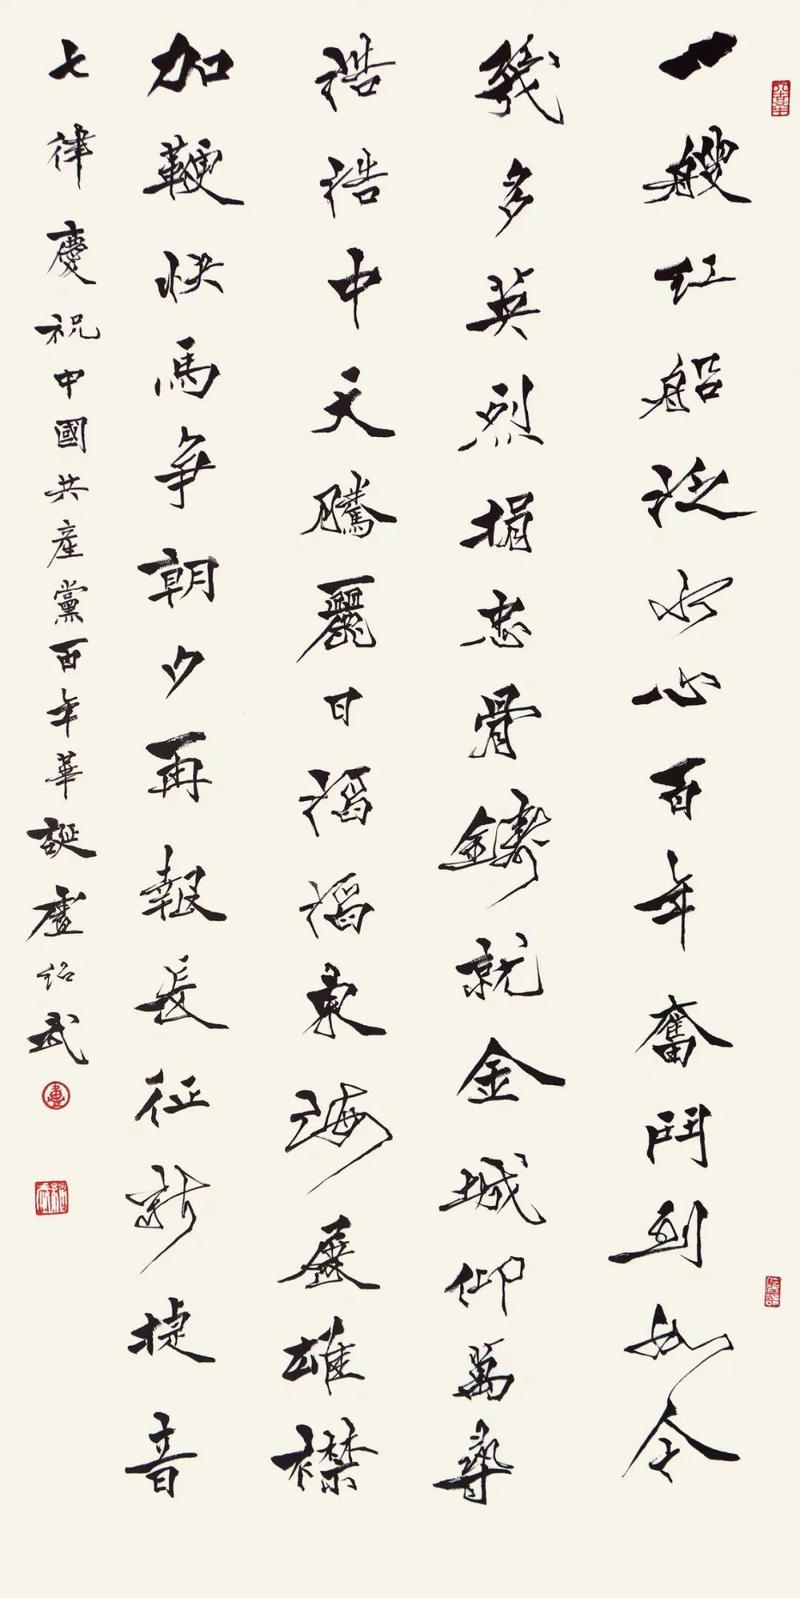 一艘红船泛水心百年奮鬥到如今
幾多英烈捐忠骨鑄就金城仰萬尋
浩浩中天騰麗日滔滔東海展雄襟
加鞭快馬争朝夕再報長征新捷音
七律慶祝中國共產黨百年華誕盧紹武